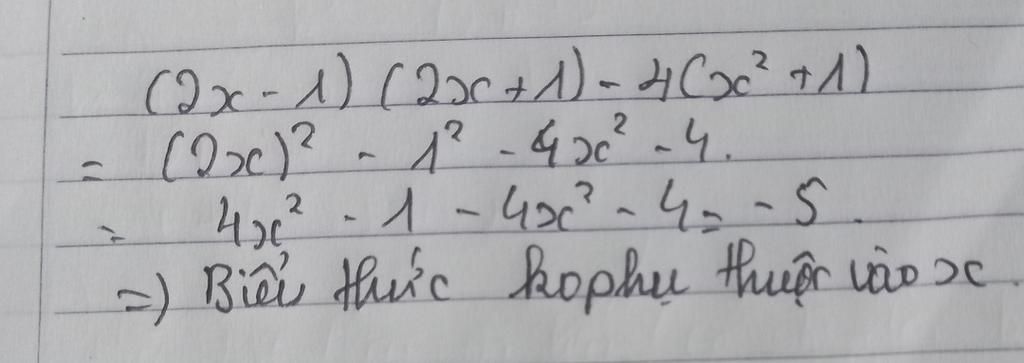 (2x - 1) (2x + 1) - 4(x² + 1)
= (2x)² - 1² - 4x² - 4.
= 4x² - 1 - 4x² - 4 = - 5.
=) Biểu thức ko phụ thuộc vào x.